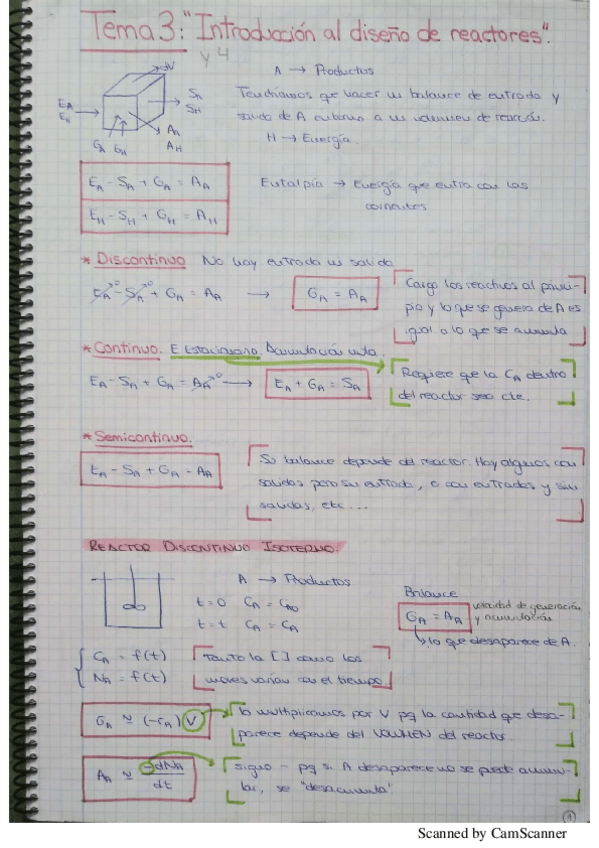 Tema 3: "Introducción al diseño de reactores".
y 4
dV
A → Productos
E_A
E_H
S_A
S_H
G_A G_H
A_A
A_H
Tendríamos que hacer un balance de entrada y
salida de A entorno a un volumen de reacción.
H → Energía.
E_A - S_A + G_A = A_A
E_H - S_H + G_H = A_H
Entalpía → Energía que entra con las
corrientes
* Discontinuo No hay entrada ni salida
E_A - S_A + G_A = A_A → G_A = A_A
Cargo los reactivos al princi-
pio y lo que se genera de A es
igual a lo que se acumula
* Continuo. E Estacionario Acumulación nula.
E_A - S_A + G_A = A_A → E_A + G_A = S_A
Requiere que la C_A dentro
del reactor sea cte.
* Semicontinuo.
E_A - S_A + G_A = A_A
Su balance depende del reactor. Hay algunos con
salidas pero sin entrada, o con entradas y sin
salidas, etc...
REACTOR DISCONTINUO ISOTERMO
A → Productos
t = 0 C_A = C_A0
t = t C_A = C_A
Balance
G_A = A_A
velocidad de generación
y acumulación
lo que desaparece de A.
C_A = f(t)
N_A = f(t)
tanto la [ ] como los
moles varían con el tiempo
G_A ≅ (-r_A) V
lo multiplicamos por V pq la cantidad que desa-
parece depende del VOLUMEN del reactor.
A_A ≅ -dN_A/dt
signo - pq si A desaparece no se puede acumu-
lar, se "desacumula"
1
Scanned by CamScanner